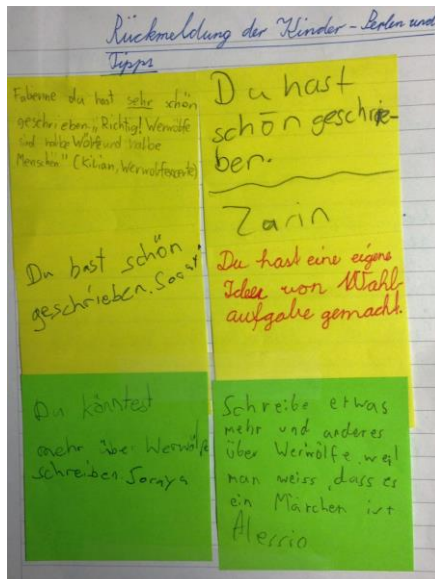 Rückmeldung der Kinder - Perlen und
Tipps
Fabienne du hast sehr schön
geschrieben. "Richtig! Werwölfe
sind halbe Wölfe und halbe
Menschen" (Kilian, Werwolfexperte)
Du hast schön
geschrieben. Soray
Du könntest
mehr über Werwölfe
schreiben. Soraya
Du hast
schön geschrie-
ben.
Zarin
Du hast eine eigene
Idee von Wahl-
aufgabe gemacht.
Schreibe etwas
mehr und anderes
über Werwölfe, weil
man weiss, dass es
ein Märchen ist
Alessio